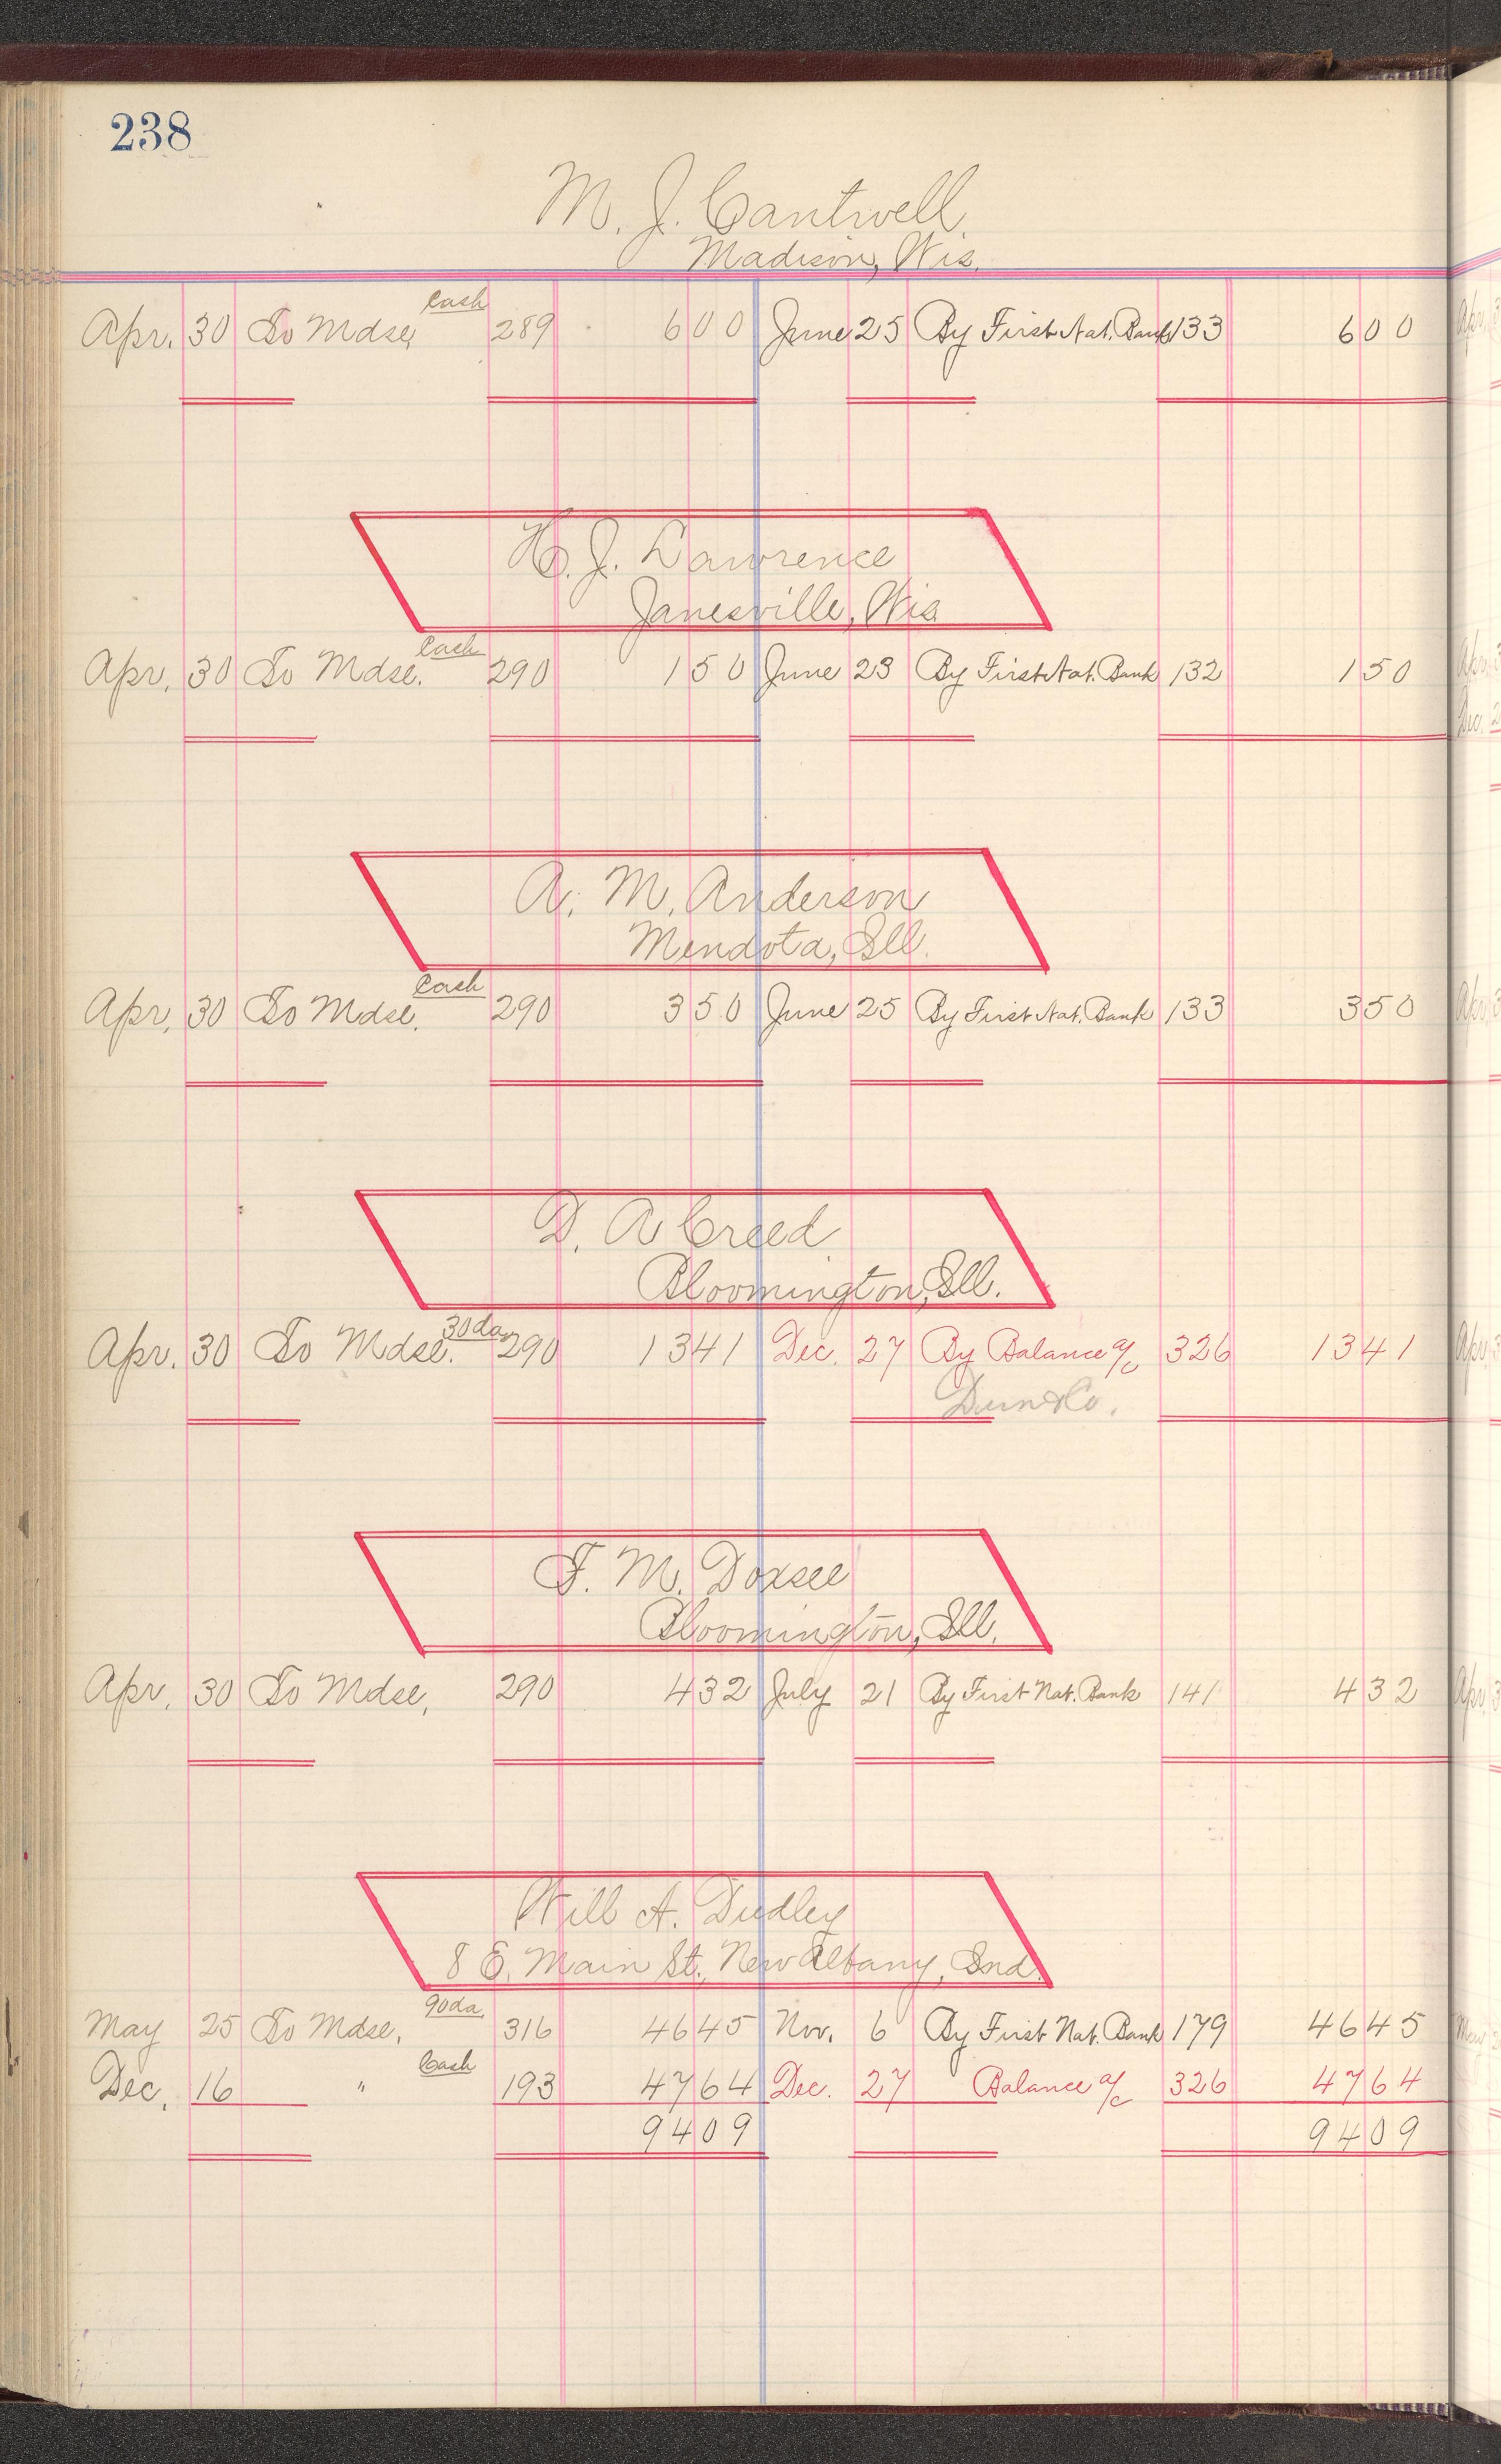 238
M. J. Cantwell.
Madison, Wis.
Apr. 30 To Mdse, Cash 289 600 June 25 By First Nat. Bank 133 600
H. J. Lawrence
Janesville, Wis.
Apr. 30 To Mdse. Cash 290 150 June 23 By First Nat. Bank 132 150
A. M. Anderson
Mendota, Ill.
Apr. 30 To Mdse. Cash 290 350 June 25 By First Nat. Bank 133 350
D. A Creed
Bloomington, Ill.
Apr. 30 To Mdse. 30 da. 290 1341 Dec. 27 By Balance a/c 326 1341
Dun & Co.
F. M. Doxsee
Bloomington, Ill.
Apr. 30 To Mdse, 290 432 July 21 By First Nat. Bank 141 432
Will A. Dudley
8 E. Main St., New Albany, Ind.
May 25 To Mdse, 90 da. 316 4645 Nov. 6 By First Nat. Bank 179 4645
Dec. 16 " Cash 193 4764 Dec. 27 Balance a/c 326 4764
9409 9409